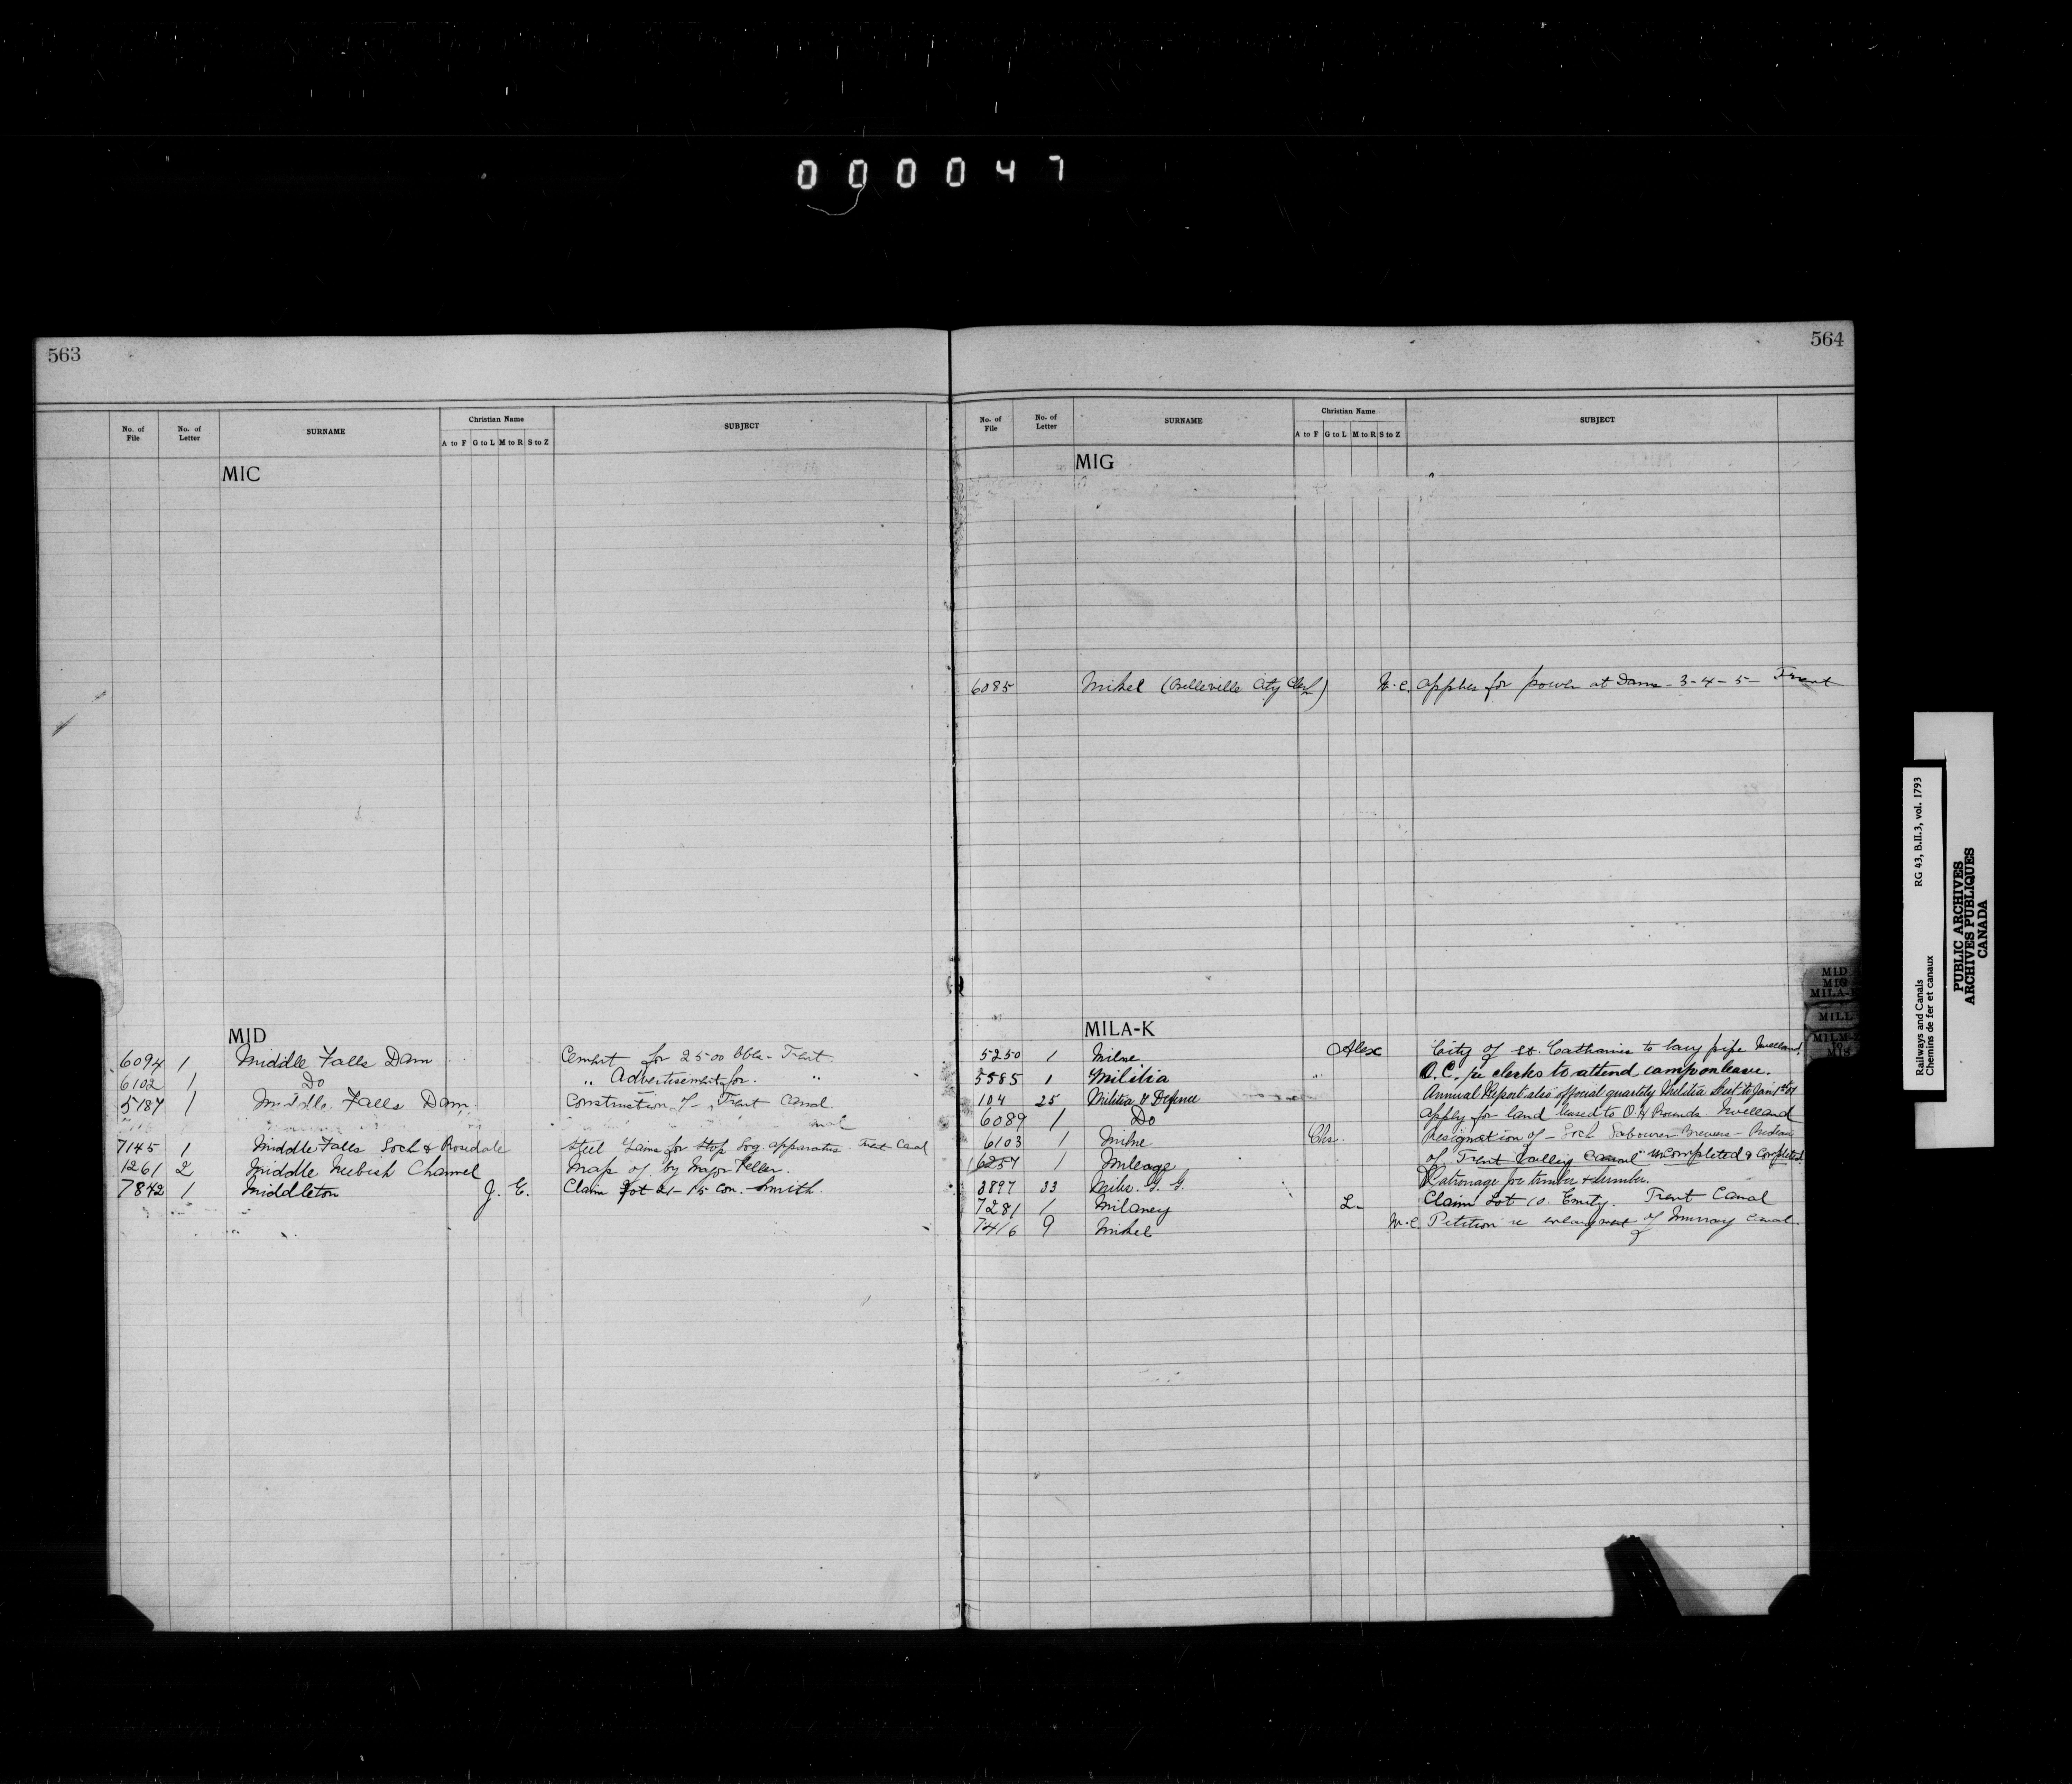 000047
563
No. of File No. of Letter SURNAME Christian Name A to F G to L M to R S to Z SUBJECT
MIC
MID
6094 1 Middle Falls Dam Cement for 2500 bbls - Trent
6102 1 Do " Advertisement for "
5187 1 Middle Falls Dam Construction of - Trent Canal
7145 1 Middle Falls Lock & Rosedale Steel for Stop Log apparatus Trent Canal
1261 2 Middle Neebish Channel Map of by Major Feller.
7842 1 Middleton J. E. Claim Lot 21 - 15 Con. Smith.
564
No. of File No. of Letter SURNAME Christian Name A to F G to L M to R S to Z SUBJECT
MIG
6085 Mikel (Belleville City Clerk) W.C. applies for power at Dams - 3-4-5- Trent
MILA-K
5250 1 Milne Alex City of St. Catharines to lay pipe Welland.
5585 1 Militia O.C. re clerks to attend camp on leave.
104 25 Militia & Defence Annual Report also official quarterly Militia List to Jan 1st
6089 1 Do apply for land leased to Welland
6103 1 Milne Chs. Resignation of - Lock Labourer Brewers - Rideau
6257 1 Mileage of Trent Valley Canal "uncompleted & completed.
3897 33 Patronage for timber & lumber.
7281 1 Milaney L. Claim Lot 10. Emily. Trent Canal
7416 9 Mikel W.C. Petition re enlargement of Murray Canal.
MID
MIG
MILA-
MILL
MILM-
Railways and Canals RG 43, B.II.3, vol. 1793
Chemins de fer et canaux
PUBLIC ARCHIVES
ARCHIVES PUBLIQUES
CANADA